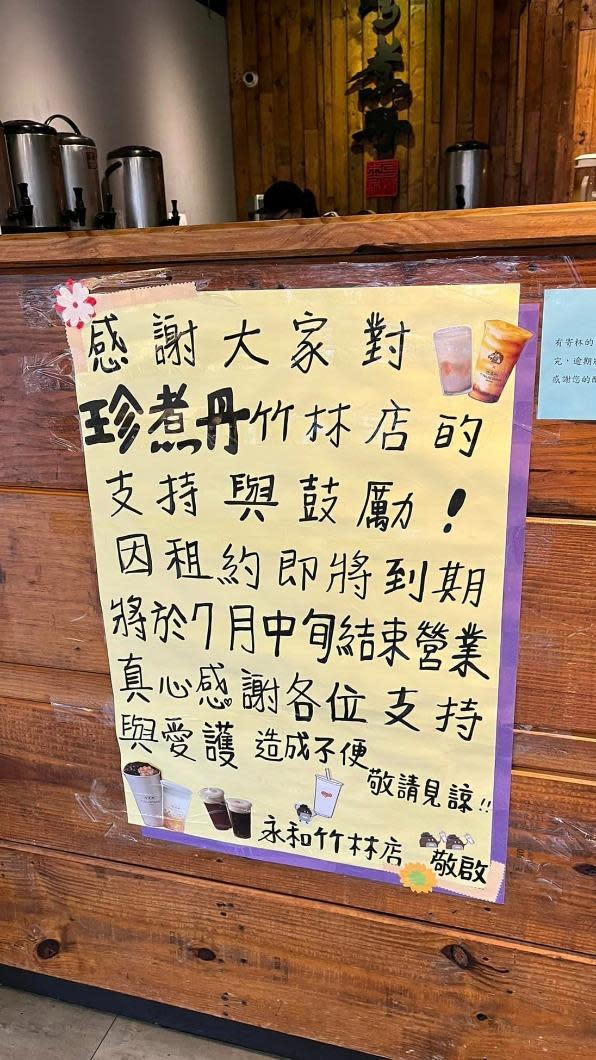 珍煮丹
感謝大家對
珍煮丹竹林店的
支持與鼓勵!
因租約即將到期
將於7月中旬結束營業
真心感謝各位支持
與愛護 造成不便
敬請見諒!!
永和竹林店 敬啟
有寄杯的
完,逾期
感謝您的